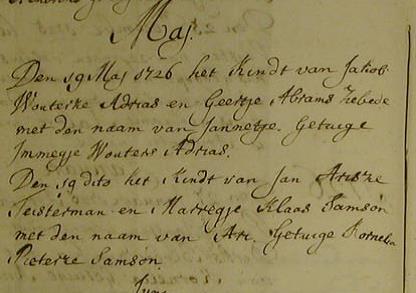 Maj.
Den 19 Maj 1726 het Kindt van Jakob
Wouterse Adrias en Geertje Abrams
met den naam van Jannetje. Getuige
Immegje Wouters Adrias.
Den 19 dito het Kindt van Jan Arisze
Teisterman en Marregje Klaas Samson
met den naam van Ari. Getuige Kornelia
Pieterze Samson.